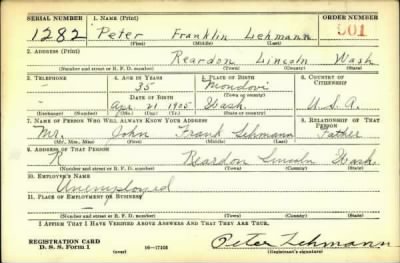 SERIAL NUMBER 1. NAME (Print) ORDER NUMBER
1282 Peter Franklin Lehmann 901
(First) (Middle) (Last)
2. ADDRESS (Print)
Reardon Lincoln Wash
(Number and street or R. F. D. number) (Town) (County) (State)
3. TELEPHONE 4. AGE IN YEARS 5. PLACE OF BIRTH 6. COUNTRY OF CITIZENSHIP
— 35 Mondovi
DATE OF BIRTH (Town or county)
Apr. 21 1905 Wash. U.S.A.
(Exchange) (Number) (Mo.) (Day) (Yr.) (State or country)
7. NAME OF PERSON WHO WILL ALWAYS KNOW YOUR ADDRESS 8. RELATIONSHIP OF THAT PERSON
Mr. John Frank Lehmann Father
(Mr., Mrs., Miss) (First) (Middle) (Last)
9. ADDRESS OF THAT PERSON
R Reardon Lincoln Wash.
(Number and street or R. F. D. number) (Town) (County) (State)
10. EMPLOYER'S NAME
Unemployed
11. PLACE OF EMPLOYMENT OR BUSINESS
—
(Number and street or R. F. D. number) (Town) (County) (State)
I AFFIRM THAT I HAVE VERIFIED ABOVE ANSWERS AND THAT THEY ARE TRUE.
REGISTRATION CARD
D. S. S. Form 1 (over) Peter Lehmann
(Registrant's signature)